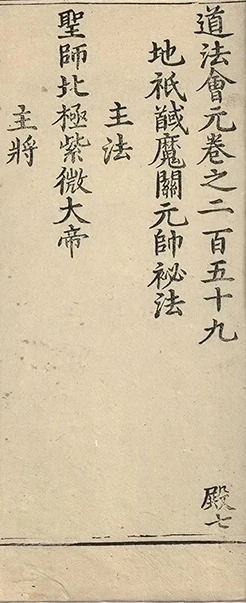 道法會元卷之二百五十九 殿七
地祇馘魔關元帥祕法
主法
聖師北極紫微大帝
主將